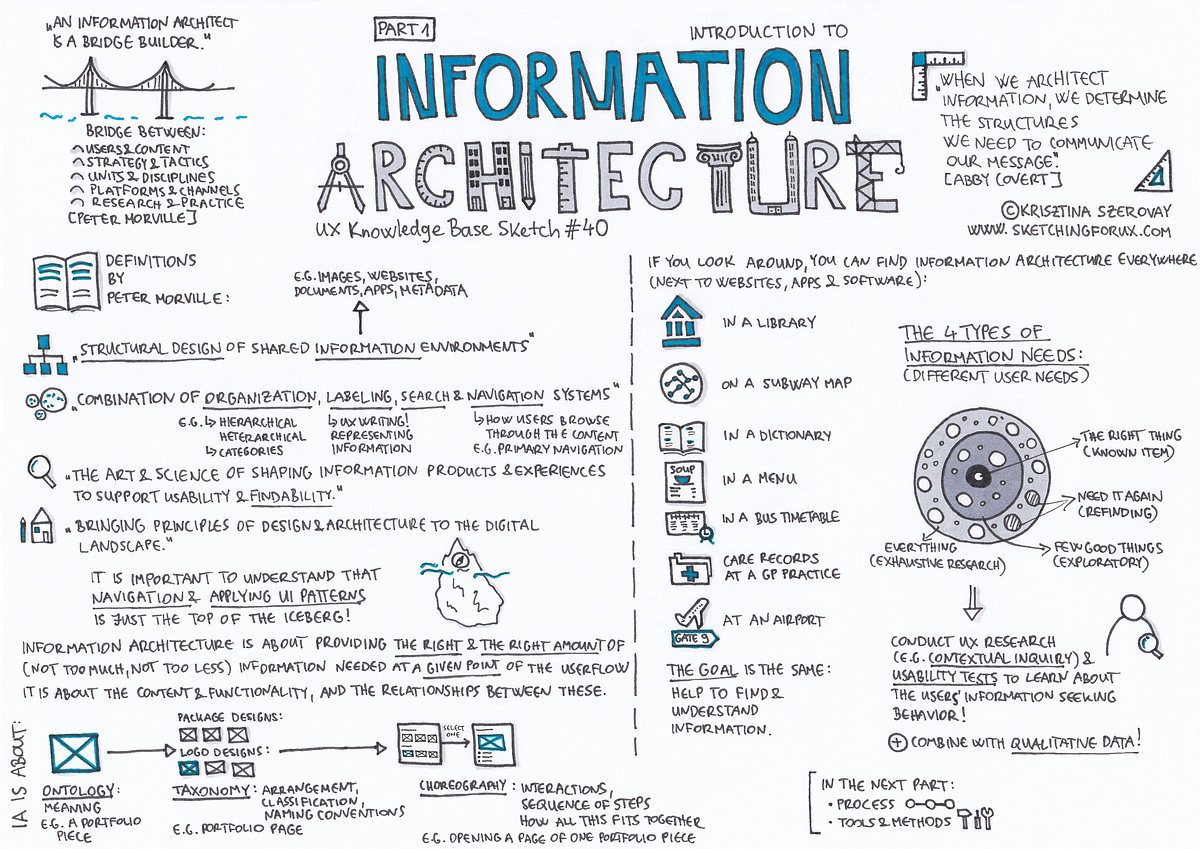 „AN INFORMATION ARCHITECT
IS A BRIDGE BUILDER."
BRIDGE BETWEEN:
USERS & CONTENT
STRATEGY & TACTICS
UNITS & DISCIPLINES
PLATFORMS & CHANNELS
RESEARCH & PRACTICE
[PETER MORVILLE]
PART 1
INTRODUCTION TO
INFORMATION
ARCHITECTURE
UX Knowledge Base Sketch #40
„WHEN WE ARCHITECT
INFORMATION, WE DETERMINE
THE STRUCTURES
WE NEED TO COMMUNICATE
OUR MESSAGE"
[ABBY COVERT]
©KRISZTINA SZEROVAY
WWW.SKETCHINGFORUX.COM
DEFINITIONS
BY
PETER MORVILLE:
E.G. IMAGES, WEBSITES,
DOCUMENTS, APPS, METADATA
„STRUCTURAL DESIGN OF SHARED INFORMATION ENVIRONMENTS"
„COMBINATION OF ORGANIZATION, LABELING, SEARCH & NAVIGATION SYSTEMS"
E.G. ↳ HIERARCHICAL
HETERARCHICAL
↳ CATEGORIES
↳ UX WRITING!
REPRESENTING
INFORMATION
↳ HOW USERS BROWSE
THROUGH THE CONTENT
E.G. PRIMARY NAVIGATION
„THE ART & SCIENCE OF SHAPING INFORMATION PRODUCTS & EXPERIENCES
TO SUPPORT USABILITY & FINDABILITY."
„BRINGING PRINCIPLES OF DESIGN & ARCHITECTURE TO THE DIGITAL
LANDSCAPE."
IT IS IMPORTANT TO UNDERSTAND THAT
NAVIGATION & APPLYING UI PATTERNS
IS JUST THE TOP OF THE ICEBERG!
INFORMATION ARCHITECTURE IS ABOUT PROVIDING THE RIGHT & THE RIGHT AMOUNT OF
(NOT TOO MUCH, NOT TOO LESS) INFORMATION NEEDED AT A GIVEN POINT OF THE USERFLOW
IT IS ABOUT THE CONTENT & FUNCTIONALITY, AND THE RELATIONSHIPS BETWEEN THESE.
IA IS ABOUT:
ONTOLOGY:
MEANING
E.G. A PORTFOLIO
PIECE
PACKAGE DESIGNS:
LOGO DESIGNS:
TAXONOMY: ARRANGEMENT,
CLASSIFICATION,
NAMING CONVENTIONS
E.G. PORTFOLIO PAGE
SELECT
ONE
CHOREOGRAPHY: INTERACTIONS,
SEQUENCE OF STEPS
HOW ALL THIS FITS TOGETHER
E.G. OPENING A PAGE OF ONE PORTFOLIO PIECE
IF YOU LOOK AROUND, YOU CAN FIND INFORMATION ARCHITECTURE EVERYWHERE
(NEXT TO WEBSITES, APPS & SOFTWARE):
IN A LIBRARY
ON A SUBWAY MAP
IN A DICTIONARY
SOUP
IN A MENU
IN A BUS TIMETABLE
CARE RECORDS
AT A GP PRACTICE
AT AN AIRPORT
GATE 9
THE GOAL IS THE SAME:
HELP TO FIND &
UNDERSTAND
INFORMATION.
THE 4 TYPES OF
INFORMATION NEEDS:
(DIFFERENT USER NEEDS)
THE RIGHT THING
(KNOWN ITEM)
NEED IT AGAIN
(REFINDING)
FEW GOOD THINGS
(EXPLORATORY)
EVERYTHING
(EXHAUSTIVE RESEARCH)
CONDUCT UX RESEARCH
(E.G. CONTEXTUAL INQUIRY) &
USABILITY TESTS TO LEARN ABOUT
THE USERS' INFORMATION SEEKING
BEHAVIOR!
+ COMBINE WITH QUALITATIVE DATA!
IN THE NEXT PART:
• PROCESS
• TOOLS & METHODS